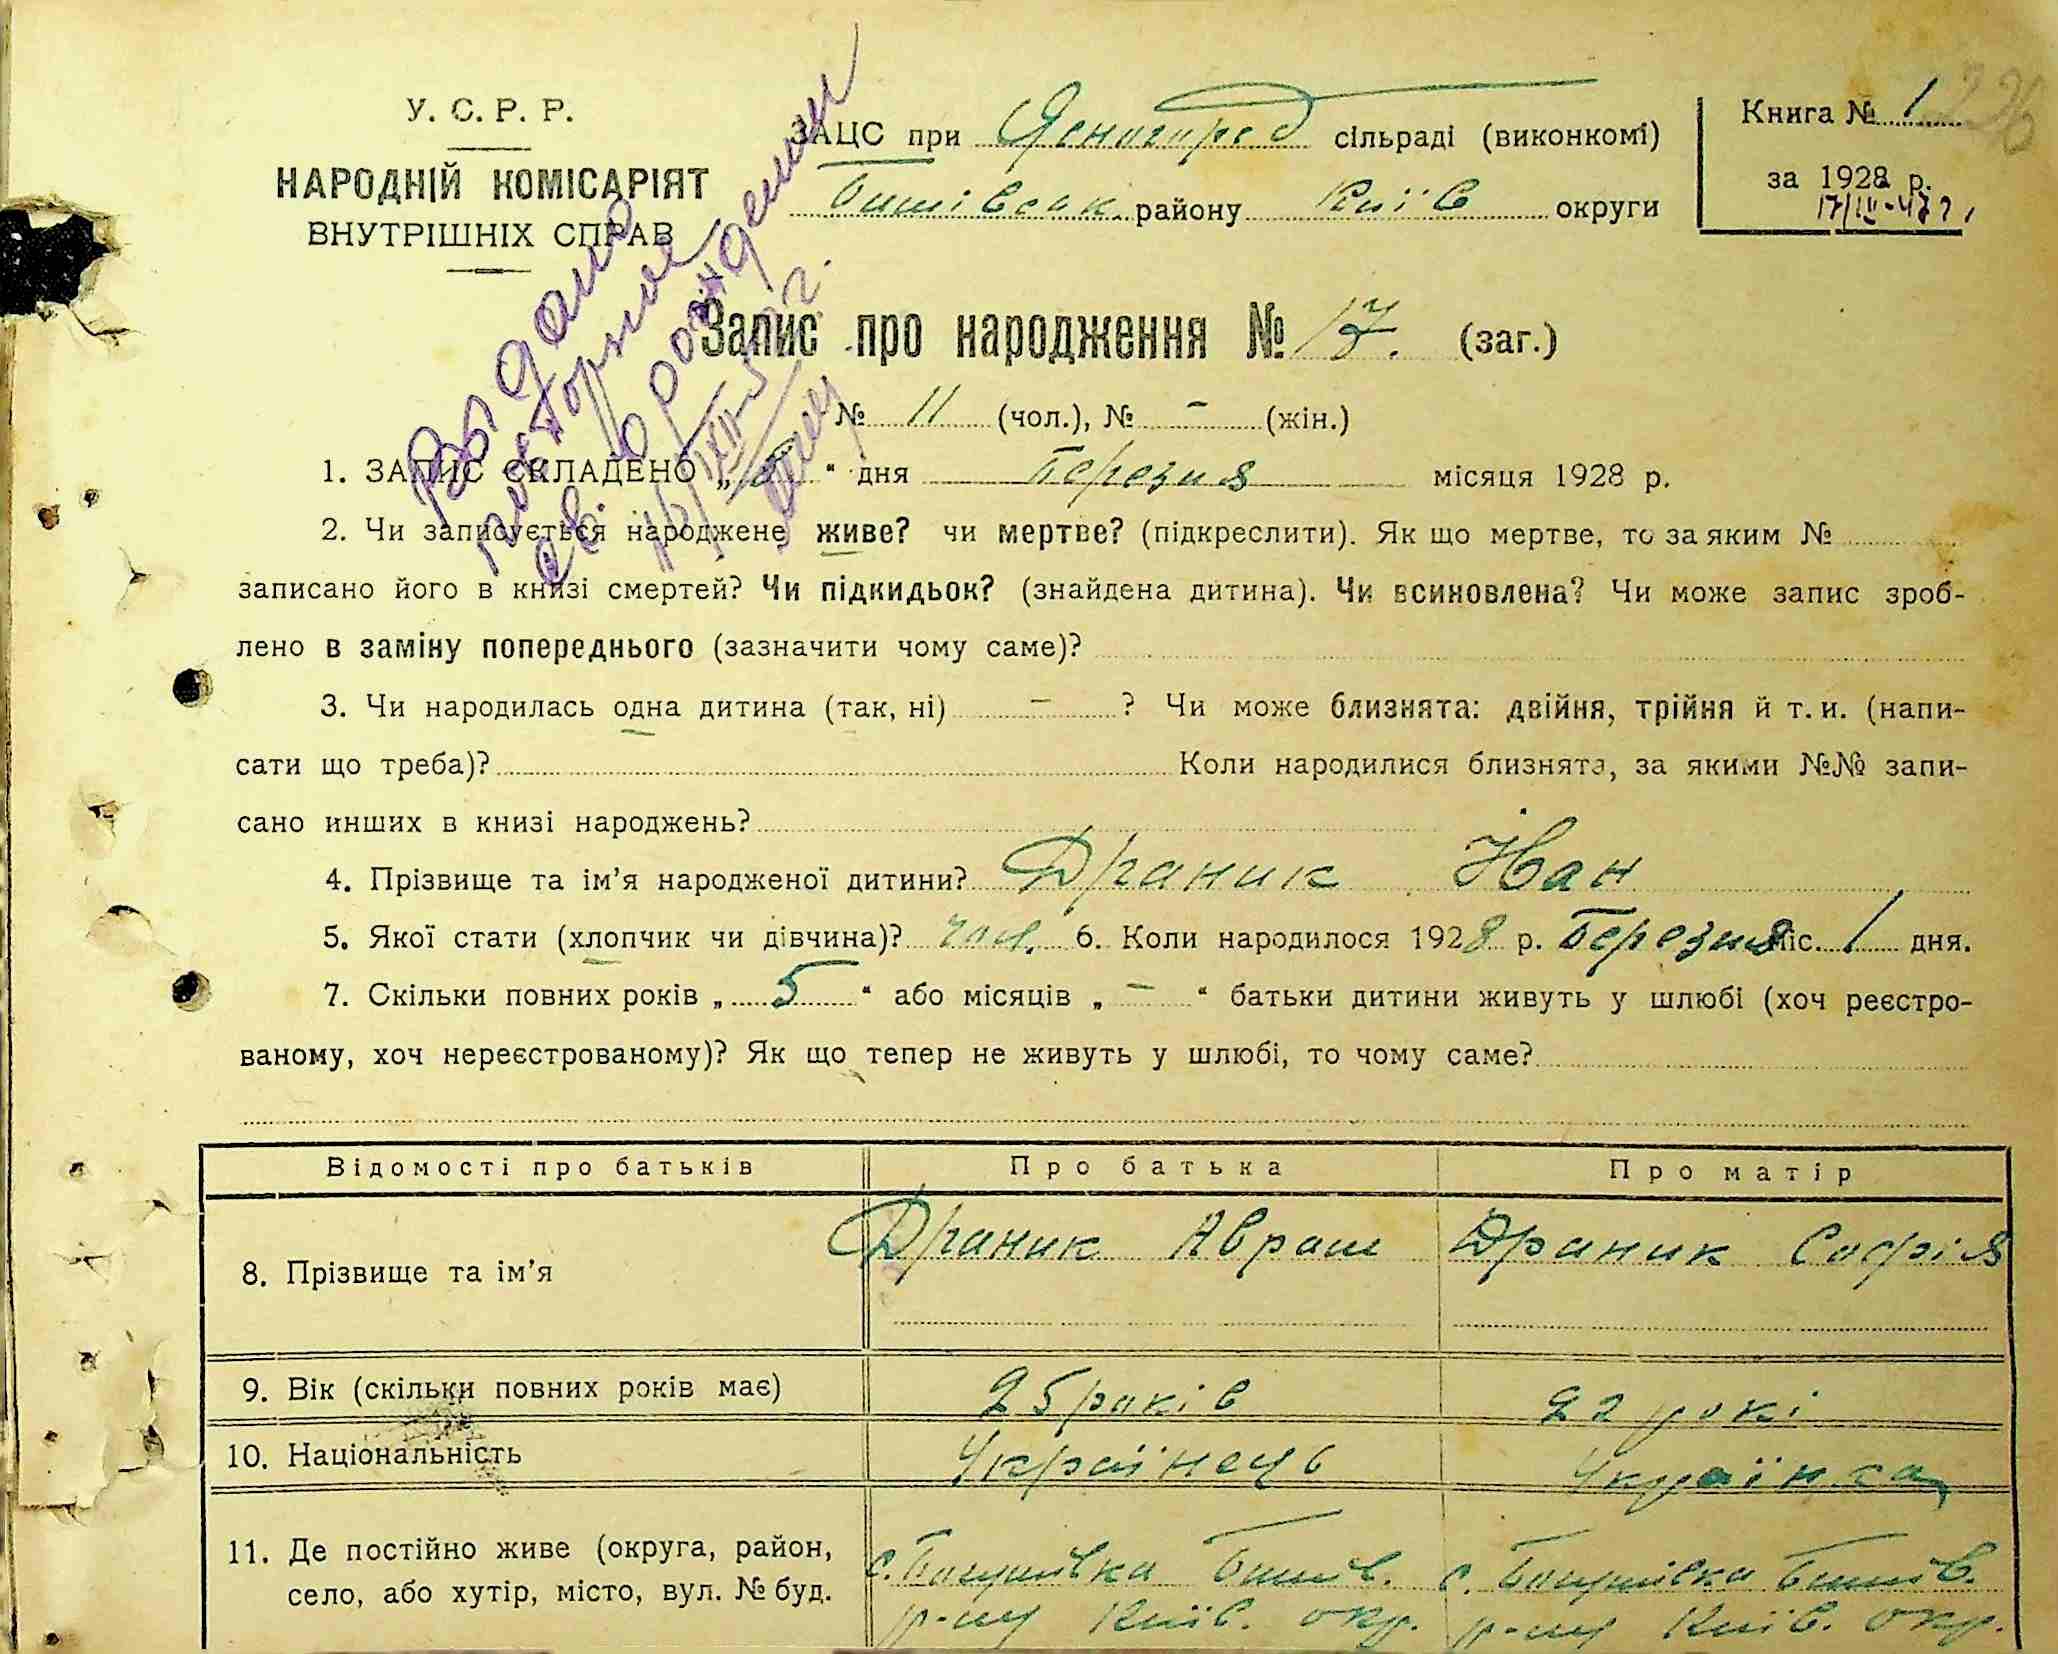 У. С. Р. Р.
НАРОДНІЙ КОМІСАРІЯТ
ВНУТРІШНІХ СПРАВ
ЗАЦС при сільраді (виконкомі)
Бишівськ. району Київ округи
Книга № 1
226
за 1928 р.
17/III-47 р.
Выдано
повторное
св. о рождении
Запис про народження № 17. (заг.)
№ 11 (чол.), № - (жін.)
1. ЗАПИС СКЛАДЕНО „8“ дня Березня місяця 1928 р.
2. Чи записується народжене живе? чи мертве? (підкреслити). Як що мертве, то за яким №
записано його в книзі смертей? Чи підкидьок? (знайдена дитина). Чи всиновлена? Чи може запис зроб-
лено в заміну попереднього (зазначити чому саме)?
3. Чи народилась одна дитина (так, ні) - ? Чи може близнята: двійня, трійня й т. и. (напи-
сати що треба)? Коли народилися близнята, за якими №№ запи-
сано инших в книзі народжень?
4. Прізвище та ім’я народженої дитини? Драник Іван
5. Якої стати (хлопчик чи дівчина)? чол. 6. Коли народилося 1928 р. Березня міс. 1 дня.
7. Скільки повних років „ 5 “ або місяців „ - “ батьки дитини живуть у шлюбі (хоч реєстро-
ваному, хоч нереєстрованому)? Як що тепер не живуть у шлюбі, то чому саме?
Відомості про батьків Про батька Про матір
8. Прізвище та ім’я Драник Аврам Драник Софія
9. Вік (скільки повних років має) 25 років 22 рокі
10. Національність Українець Українка
11. Де постійно живе (округа, район, с. Бишів. с. Бишів.
село, або хутір, місто, вул. № буд. р-ну Київ. окр. р-ну Київ. окр.